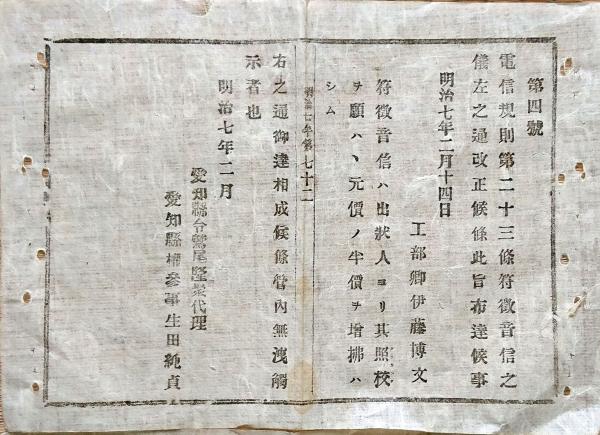 第四號
電信規則第二十三條符徵音信之
儀左之通改正候條此旨布達候事
明治七年二月十四日
工部卿伊藤博文
符徵音信ハ出狀人ヨリ其照校
ヲ願ハヽ元價ノ半價ヲ增拂ハ
シム
明治七年第七十二
右之通御達相成候條管內無洩觸
示者也
明治七年二月
愛知縣令鷲尾隆聚代理
愛知縣權參事生田純貞